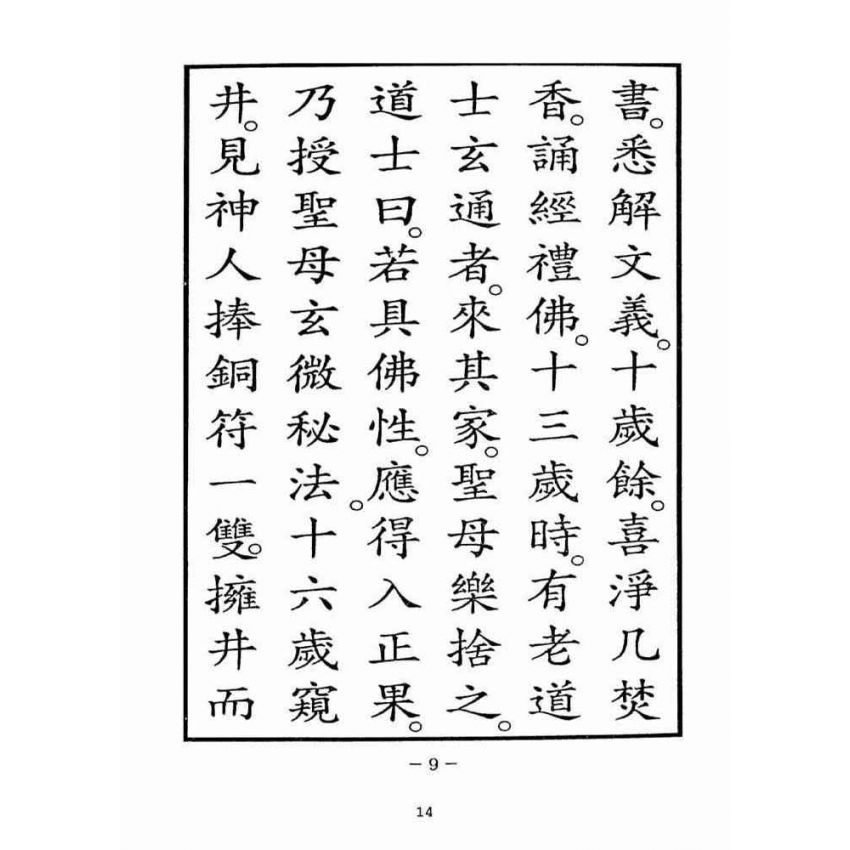 書。悉解文義。十歲餘。喜淨几焚
香。誦經禮佛。十三歲時。有老道
士玄通者。來其家。聖母樂捨之。
道士曰。若具佛性。應得入正果。
乃授聖母玄微秘法。十六歲窺
井。見神人捧銅符一雙。擁井而
－9－
14